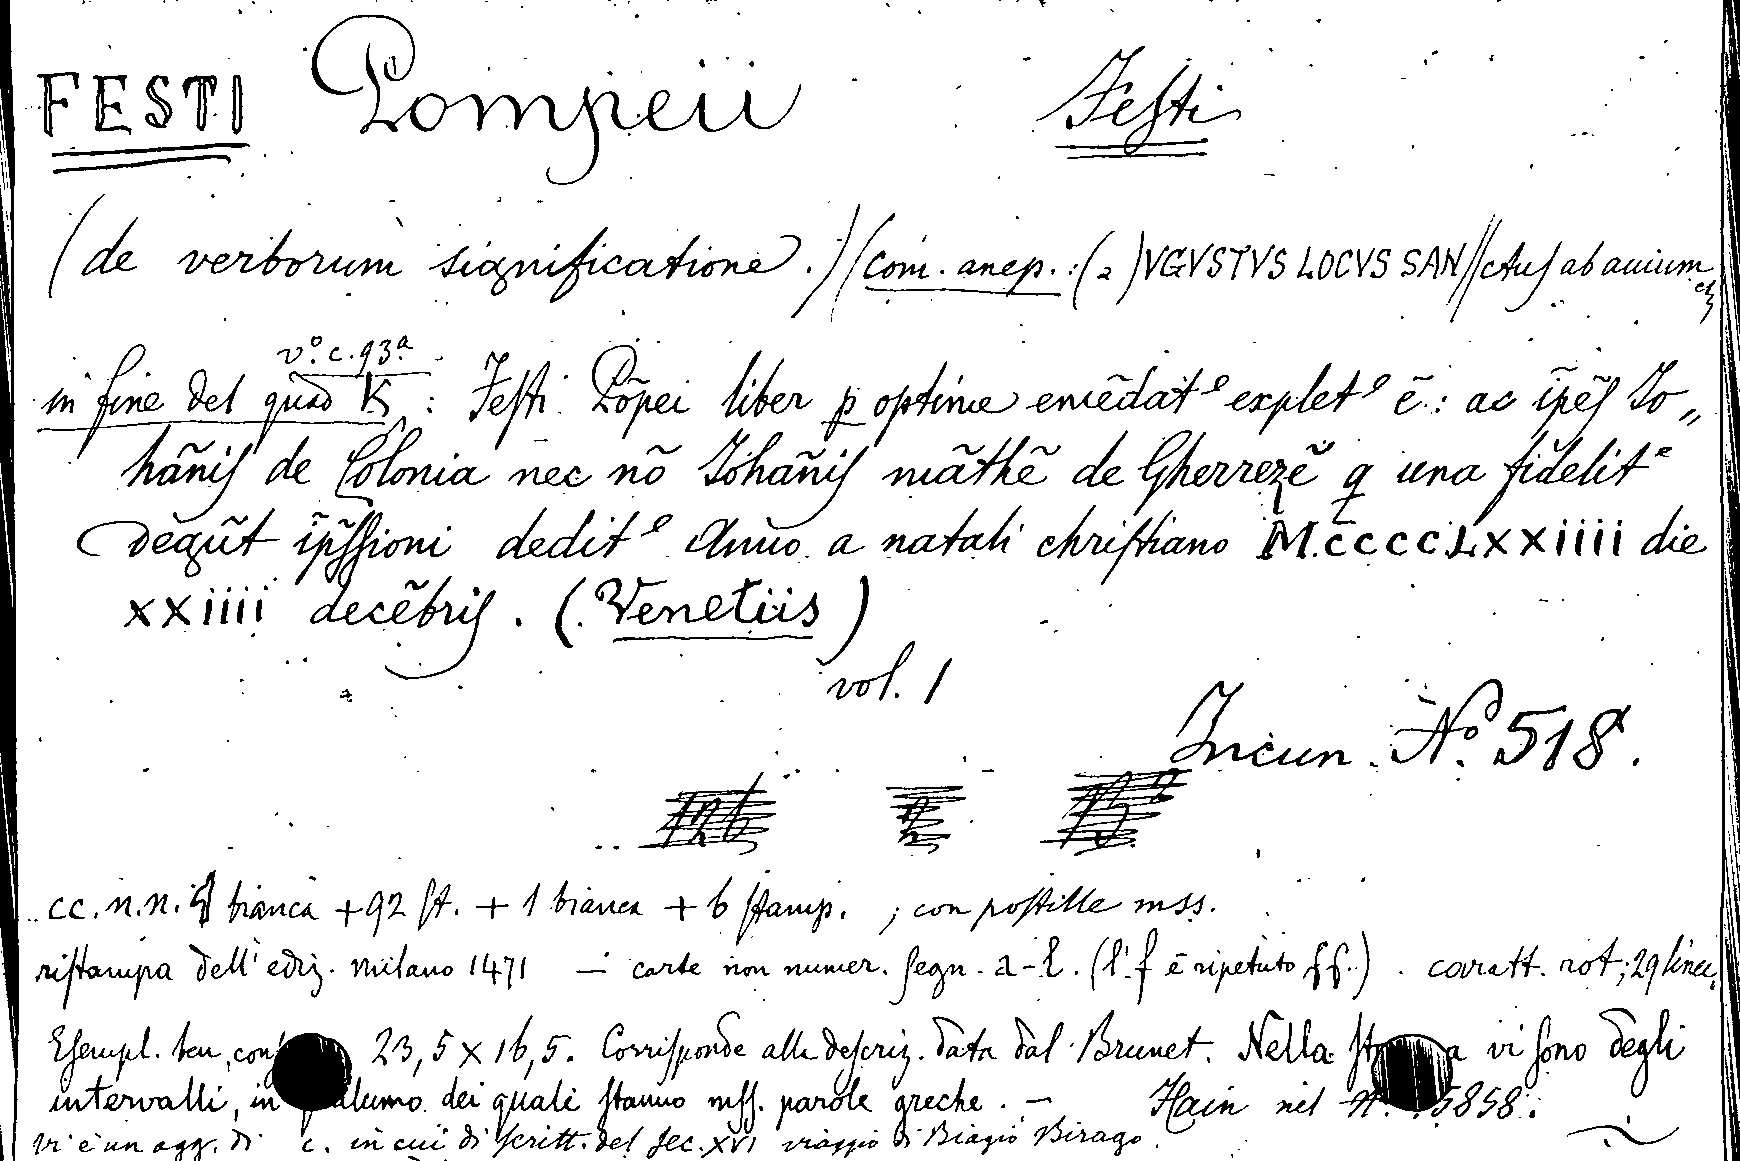 FESTI Pompeii Festi
(de verborum significatione.) (com. anep.: (a)VGVSTVS LOCVS SAN//ctus ab auium
v.º c. 93ª
in fine del quad K : Festi Põpei liber p̱ optime emẽdatꝰ expletꝰ ẽ: ac ĩpẽs Jo„
hãnis de Colonia nec nõ Johãnis mãthẽ de Gherrezẽ q una fidelitᵉ
dẽgũt ĩp̃ssioni deditꝰ Anno a natali christiano M.ccccLxxiiii die
xxiiii decẽbris. (Venetiis)
vol. 1
Incun. Nº. 518.
cc. n.n. bianca + 92 st. + 1 bianca + 6 stamp. ; con postille mss.
ristampa dell' ediz. Milano 1471 — carte non numer. segn. a-l. (l' f è ripetuto ff.). caratt. rot; 29 linee.
Esempl. ben 23,5 x 16,5. Corrisponde alla descriz. data dal Brunet. Nella vi sono degli
intervalli, in dei quali stanno mss. parole greche. — Hain nel n. 5858.
vi è un agg. di c. in cui di scritt. del sec. XVI viaggio di Biagio Birago.